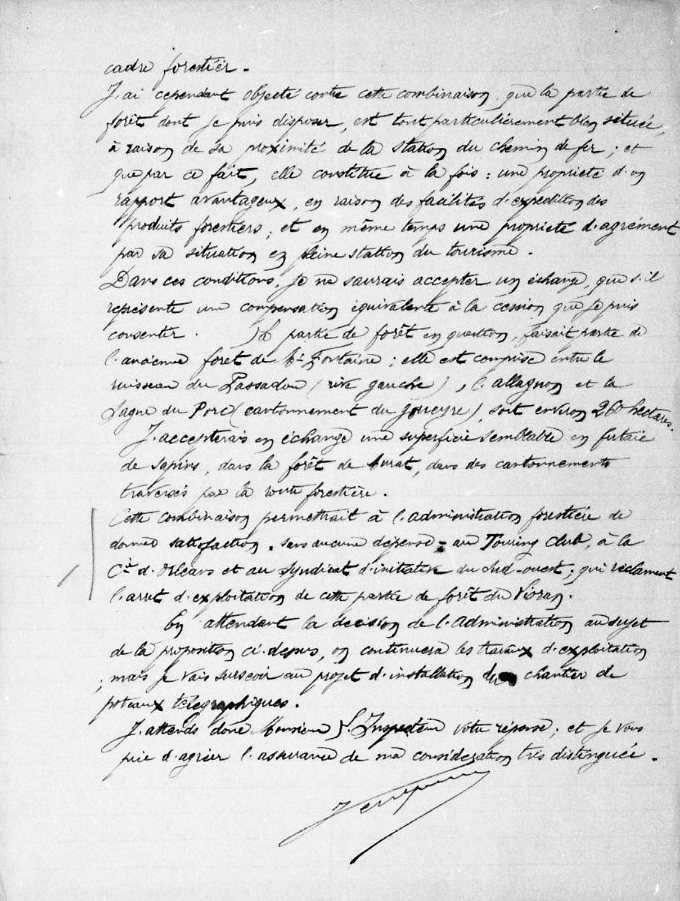 cadre forestier.
J'ai cependant objecté contre cette combinaison que la partie de
forêt dont je puis disposer, est tout particulièrement bien située,
à raison de sa proximité de la station du chemin de fer ; et
que par ce fait, elle constitue à la fois : une propriété d'un
rapport avantageux, en raison des facilités d'expédition des
produits forestiers ; et en même temps une propriété d'agrément
par sa situation en pleine station du tourisme.
Dans ces conditions, je ne saurais accepter un échange, que s'il
représente une compensation équivalente à la cession que je puis
consentir. La partie de forêt en question, faisait partie de
l'ancienne forêt de Mr Fontaine ; elle est comprise entre le
ruisseau du Passadou (rive gauche), l'allagnon et la
Sagne du Porc (cantonnement du ), soit environ 260 hectares.
J'accepterais en échange une superficie semblable en futaie
de sapins, dans la forêt de Murat, dans des cantonnements
traversés par la route forestière.
Cette combinaison permettrait à l'administration forestière de
donner satisfaction - sans aucune dépense - au Touring Club, à la
Cie d'Orléans et au Syndicat d'initiative du Sud-ouest ; qui réclament
l'arrêt d'exploitation de cette partie de forêt du Lioran.
En attendant la décision de l'Administration au sujet
de la proposition ci-dessus, on continuera les travaux d'exploitation
; mais je vais surseoir au projet d'installation du chantier de
poteaux télégraphiques.
J'attends donc Monsieur l'Inspecteur votre réponse ; et je vous
prie d'agréer l'assurance de ma considération très distinguée.